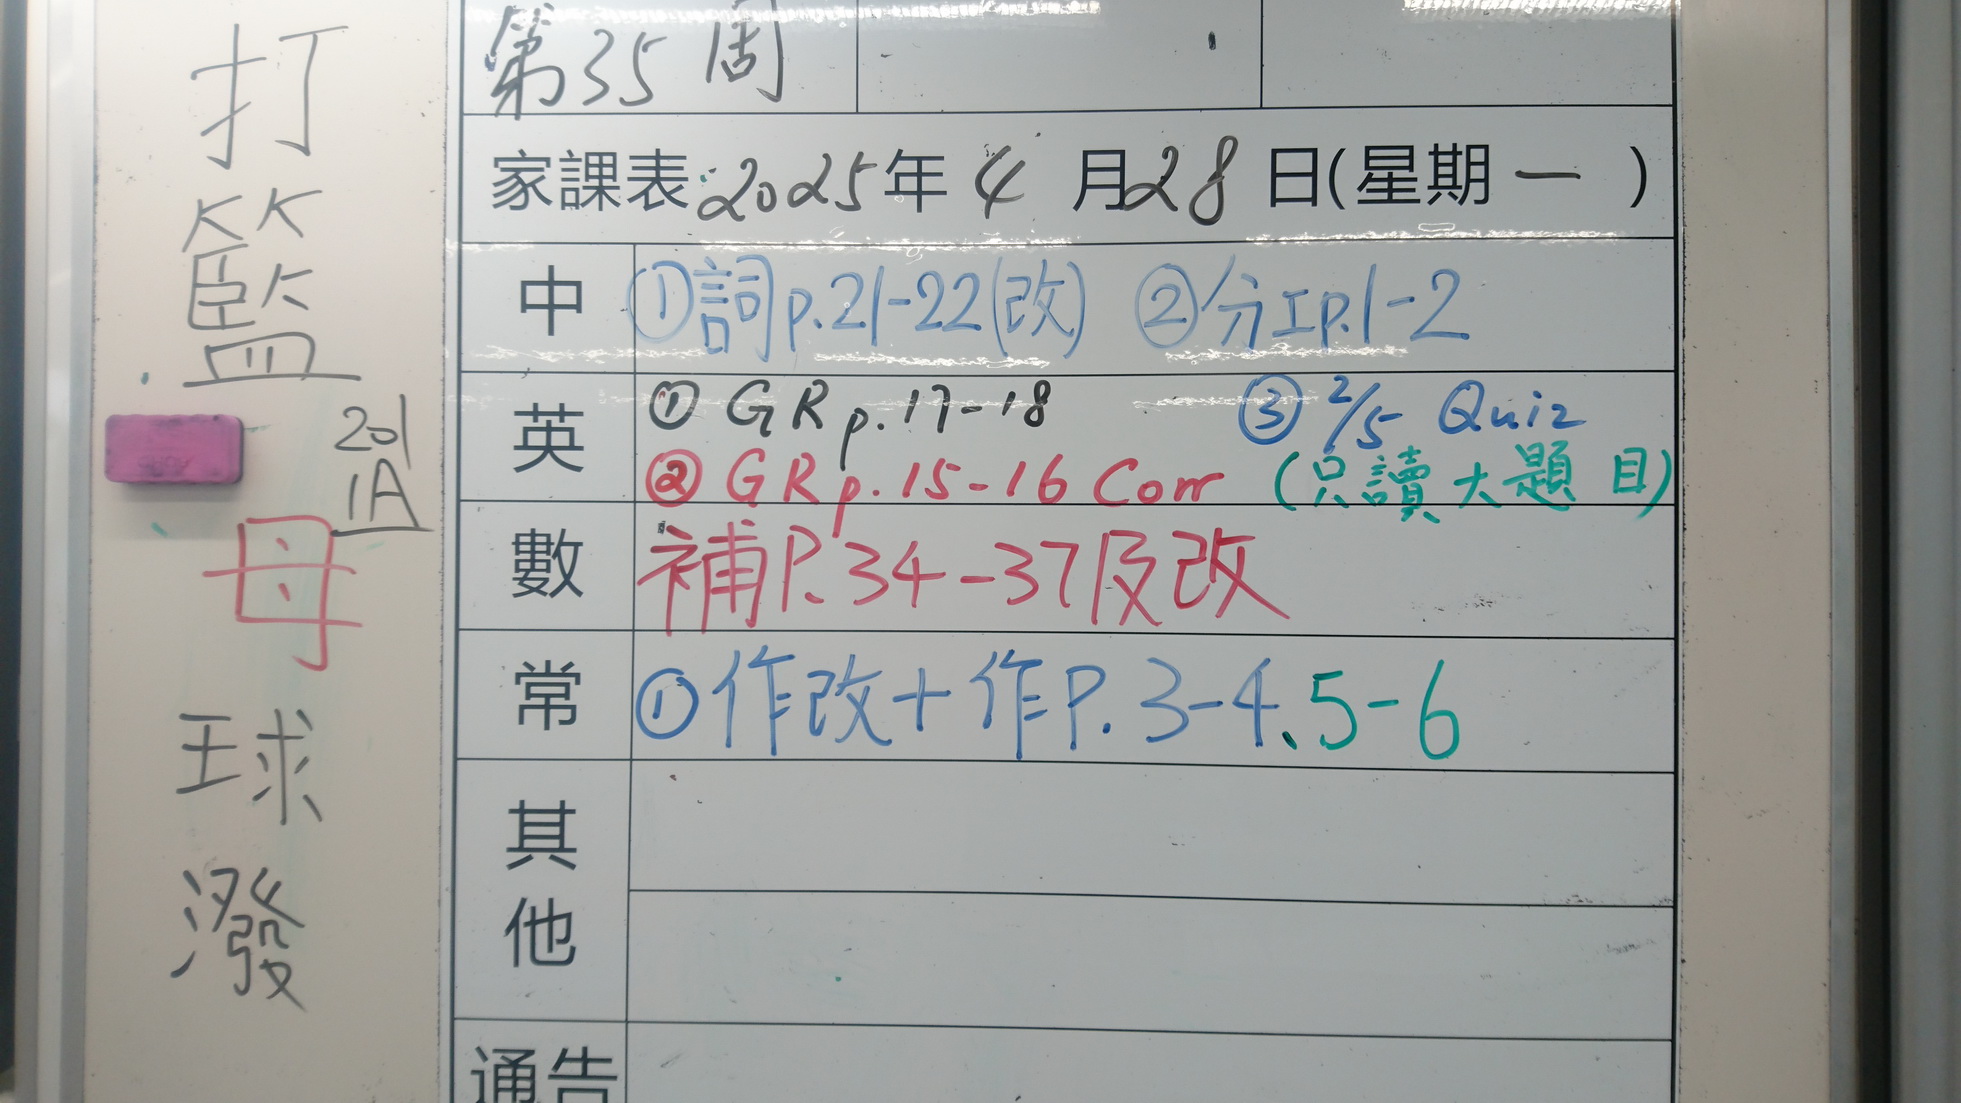 第35周
家課表:2025年4月28日(星期一)
中 ①詞p.21-22(改) ②分工p.1-2
英 ① GR p.17-18 ③ 2/5 Quiz
② GR p.15-16 Corr (只讀大題目)
數 補P.34-37及改
常 ①作改+作P.3-4、5-6
其他
通告
打籃
201
1A
母
球
潑